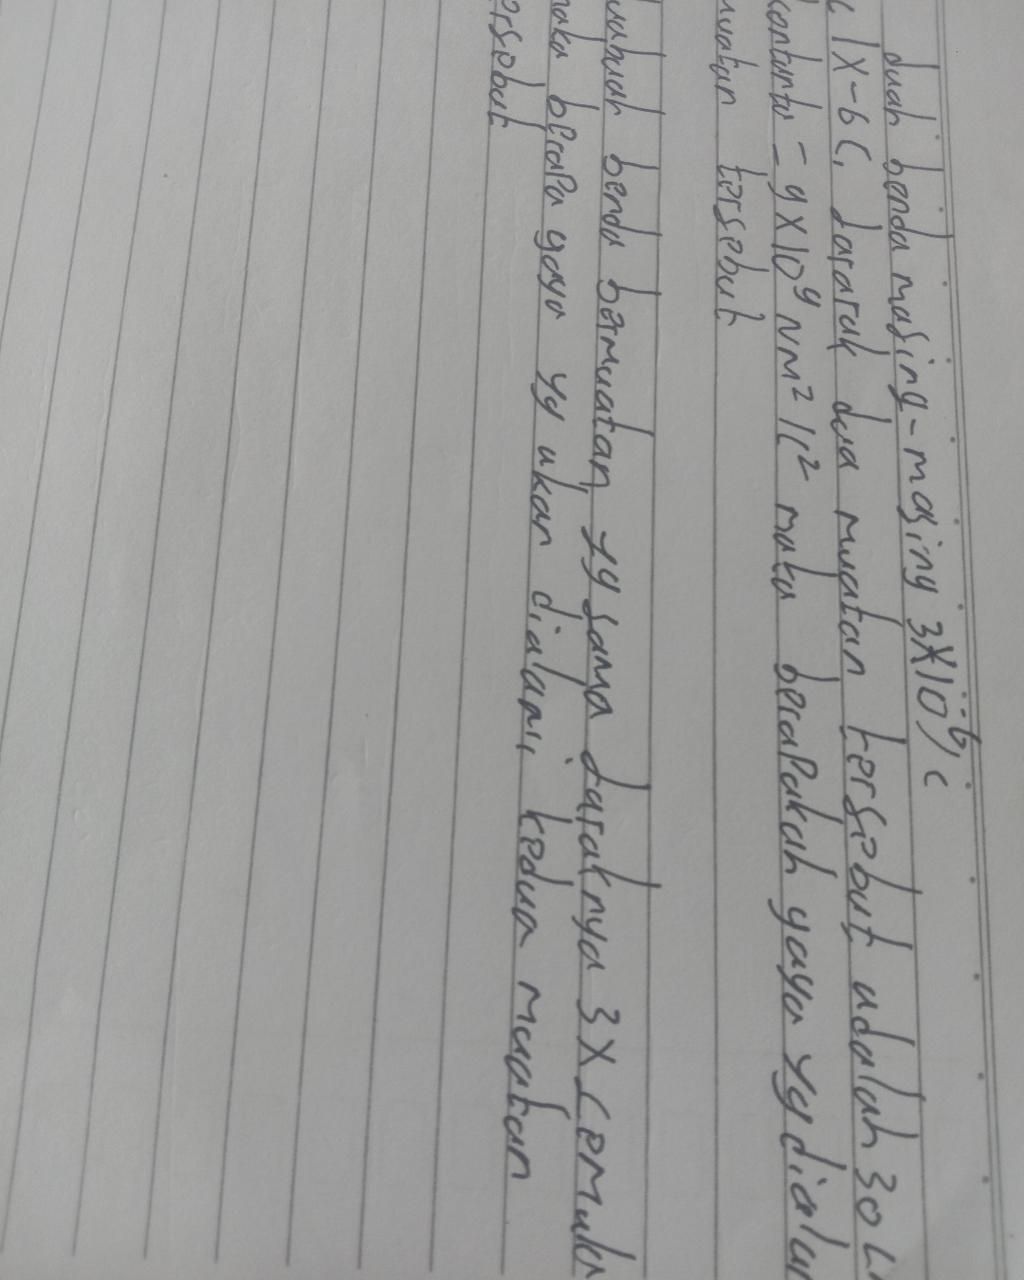 duah benda masing-masing 3X10⁻⁶, c
1X-6 C, Jararak dua muatan tersebut adalah 30
contanta = 9X10⁹ NM² /C² maka berapakah gaya yg dialam
muatan tersebut
benda bermuatan yg sama Jaraknya 3X semula
maka berapa gaya yg akan dialami kedua muatan
ersebut